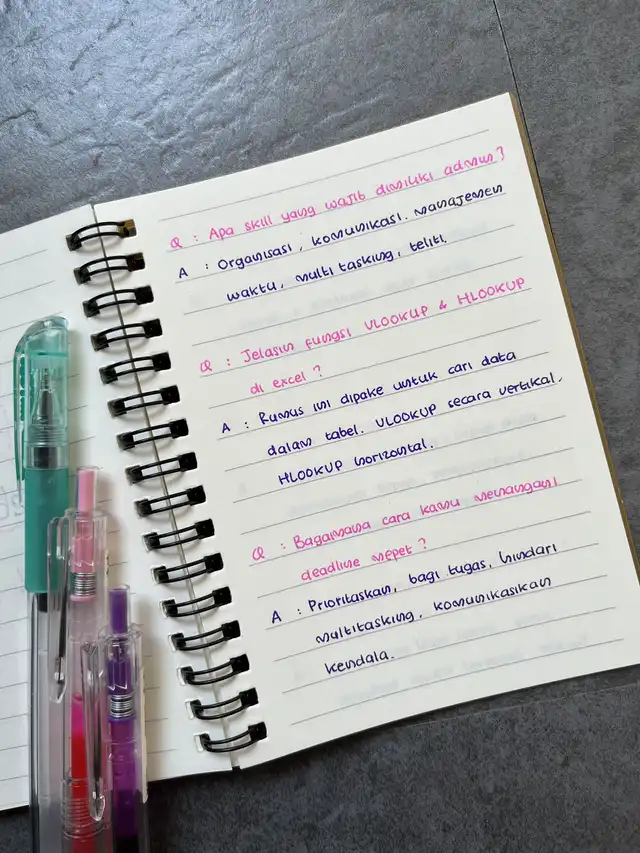 Q : Apa skill yang wajib dimiliki admin?
A : Organisasi, komunikasi, manajemen
waktu, multi tasking, teliti.
Q : Jelasin fungsi VLOOKUP & HLOOKUP
di excel ?
A : Rumus ini dipake untuk cari data
dalam tabel. VLOOKUP secara vertikal,
HLOOKUP horizontal.
Q : Bagaimana cara kamu menangani
deadline mepet ?
A : Prioritaskan, bagi tugas, hindari
multitasking, komunikasikan
kendala.